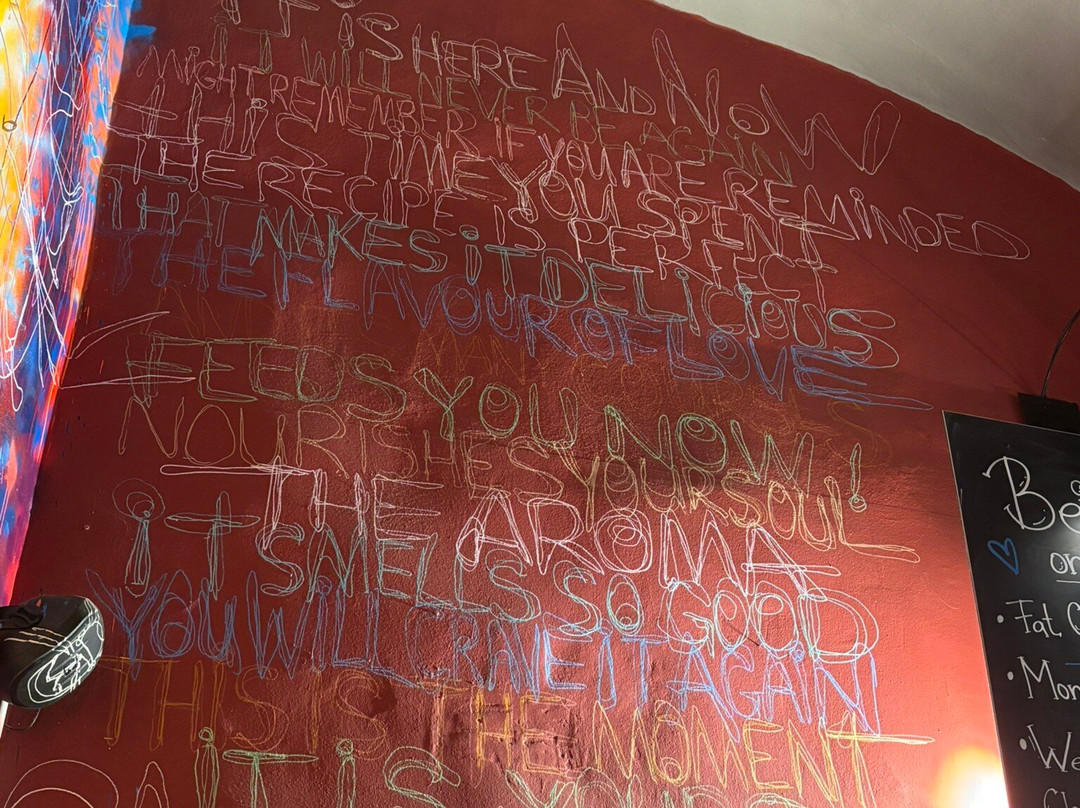 IT iS HERE AND NOW
IT WILL NEVER BE AGAIN
MIGHT REMEMBER IF YOU ARE REMINDED
THIS TIME YOU SPENT
THE RECIPE IS PERFECT
THAT MAKES iT DELiCiOUS
THE FLAVOUR OF LOVE
FEEDS YOU NOW!
NOURISHES YOUR SOUL
THE AROMA
iT SMELLS SO GOOD
YOU WILL CRAVE IT AGAiN
THIS IS THE MOMENT
iT iS YOUR
Be
on
• Fat
• Mon
• We